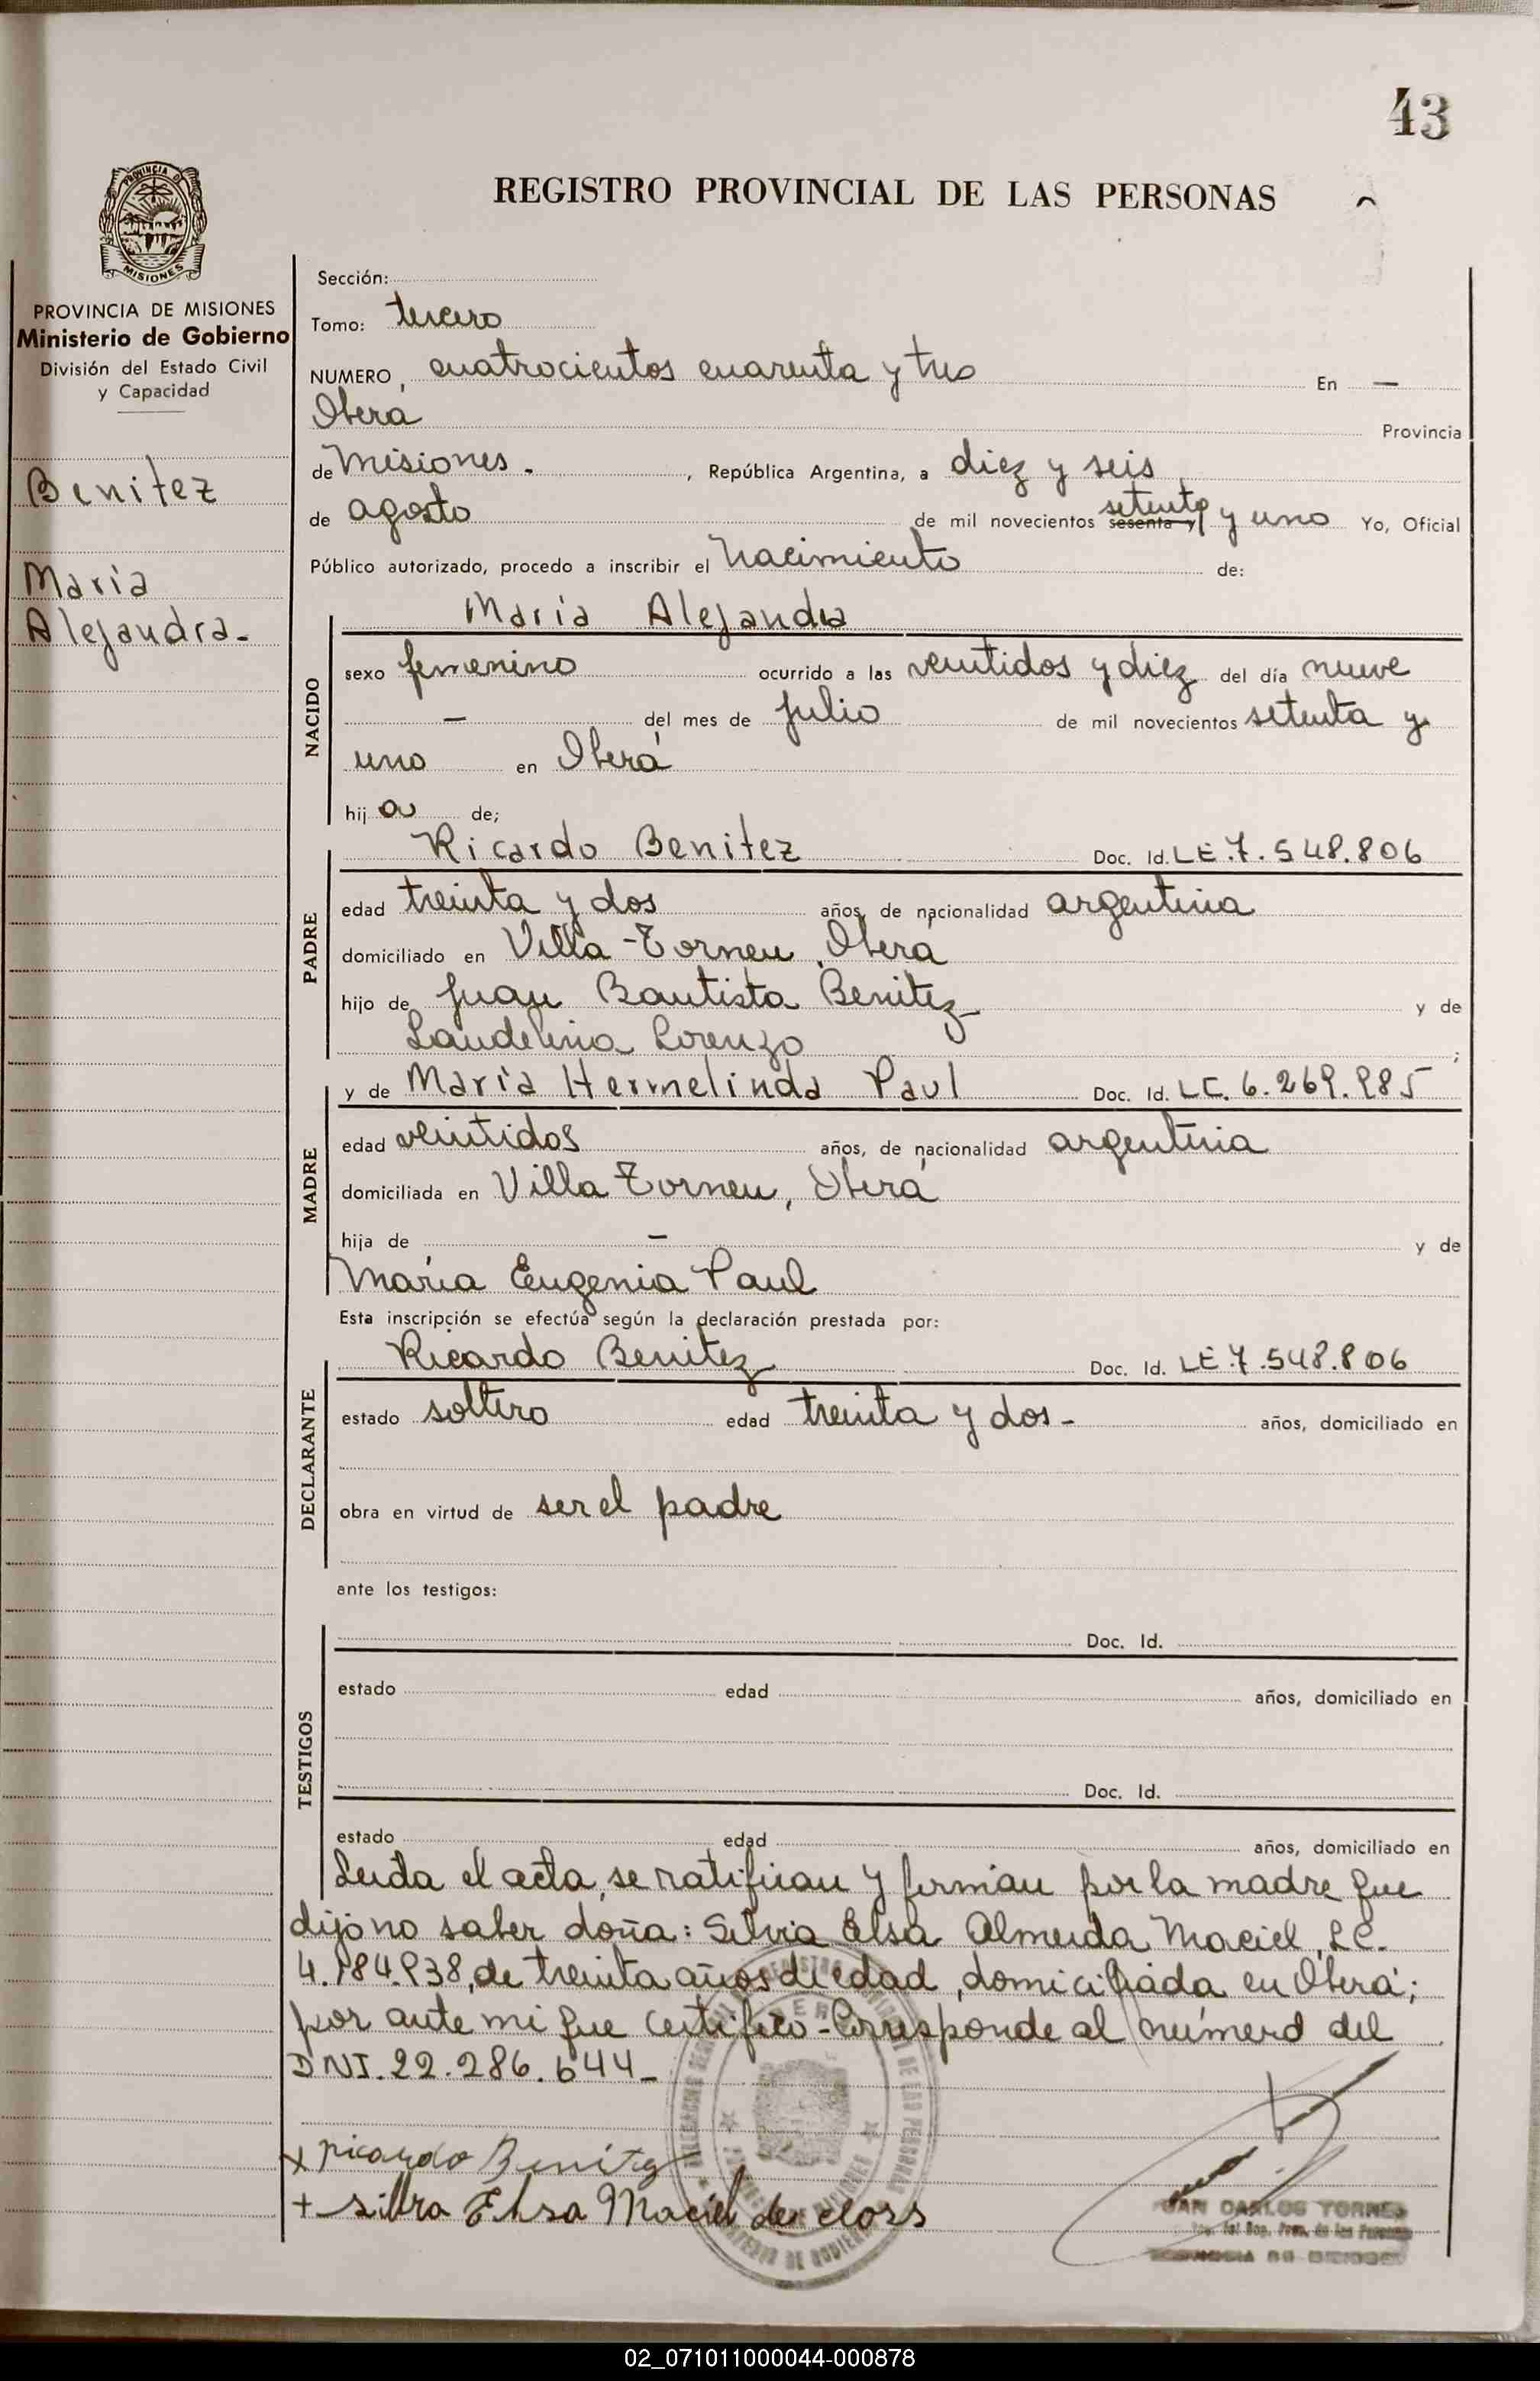 43
REGISTRO PROVINCIAL DE LAS PERSONAS
PROVINCIA DE
MISIONES
PROVINCIA DE MISIONES
Ministerio de Gobierno
División del Estado Civil
y Capacidad
Benitez
María
Alejandra-
Sección:
Tomo: tercero
NUMERO, cuatrocientos cuarenta y tres En —
Oberá Provincia
de Misiones. , República Argentina, a diez y seis
de agosto de mil novecientos sesenta y setenta y uno Yo, Oficial
Público autorizado, procedo a inscribir el nacimiento de:
María Alejandra
NACIDO
sexo femenino ocurrido a las ventidos y diez del día nueve
— del mes de julio de mil novecientos setenta y
uno en Oberá
hij a de;
Ricardo Benitez Doc. Id. LE.7.548.806
PADRE
edad treinta y dos años, de nacionalidad argentina
domiciliado en Villa-Torneu, Oberá
hijo de Juan Bautista Benitez y de
Laudelina Lorenzo ;
y de María Hermelinda Paul Doc. Id. LC. 6.269.985
MADRE
edad veintidos años, de nacionalidad argentina
domiciliada en Villa Torneu, Oberá
hija de — y de
María Eugenia Paul
Esta inscripción se efectúa según la declaración prestada por:
Ricardo Benitez Doc. Id. LE.7.548.806
DECLARANTE
estado soltero edad treinta y dos- años, domiciliado en
obra en virtud de ser el padre
ante los testigos:
Doc. Id.
TESTIGOS
estado edad años, domiciliado en
Doc. Id.
estado edad años, domiciliado en
Leida el acta, se ratifican y firman por la madre que
dijo no saber doña: Silvia Elsa Almeida Maciel, LC.
4.184.938, de treinta años de edad, domiciliada en Oberá;
por ante mi que certifico-Corresponde al número del
DNI.22.286.644-
x Ricardo Benitez
+ silbra Elsa Maciel de closs
JUAN CARLOS TORRES
02_071011000044-000878